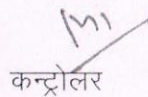 कन्ट्रोलर